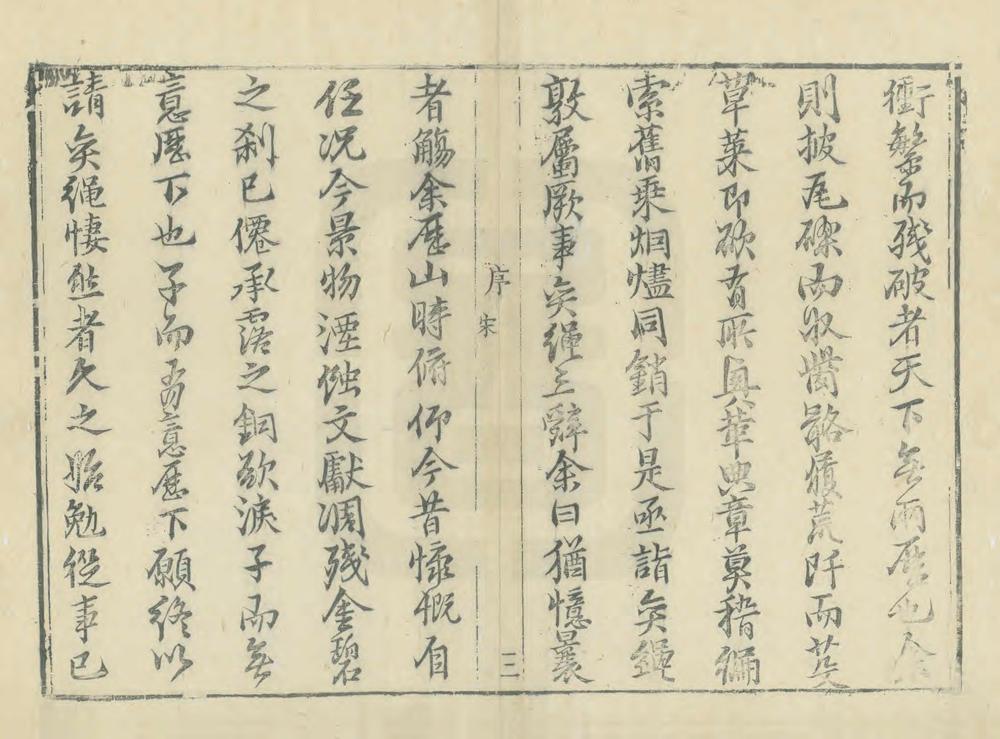 衝繁而殘破者天下無兩歷也余
則披瓦礫而收胔骼履荒阡而芟
草萊即欲有所興革典章莫稽徧
索舊乘烟燼同銷于是亟詣奕繩
敦屬厥事奕繩三辭余曰猶憶曩
序 宋 三
者觴余歷山時俯仰今昔慷慨自
任况今景物湮蝕文獻凋殘金碧
之刹已僊承露之銅欲淚子而無
意歷下也子而有意歷下願終以
請奕繩悽然者久之黽勉從事已